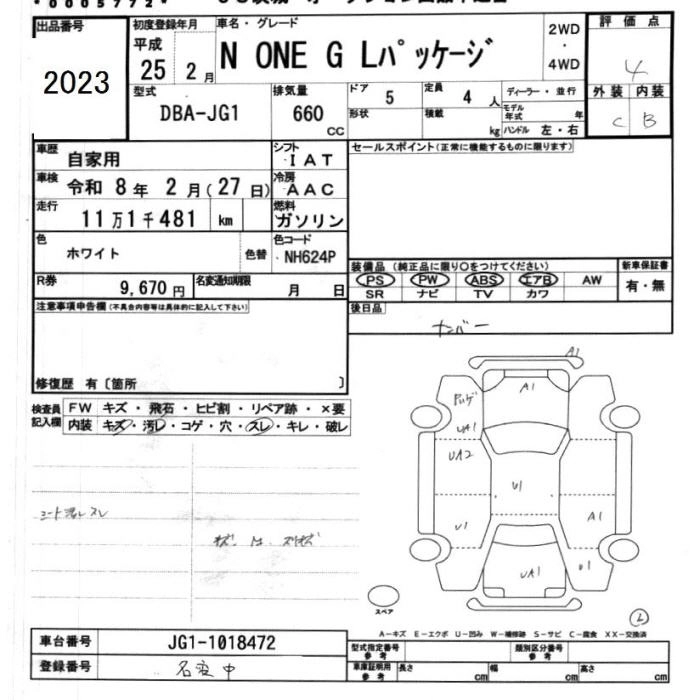 *0005772*
出品番号 2023
初度登録年月 平成 25 2月
車名・グレード N ONE G Lパッケージ
2WD・4WD
評価点 4
型式 DBA-JG1
排気量 660 CC
ドア 5
形状
定員 4 人
積載 kg
ディーラー・並行
モデル年式 年
ハンドル 左・右
外装 内装
C B
車歴 自家用
シフト IAT
セールスポイント(正常に機能するものに限ります)
車検 令和 8年 2月(27日)
冷房 AAC
走行 11万1千481 km
燃料 ガソリン
色 ホワイト 色替
色コード NH624P
装備品 (純正品に限り○をつけてください)
新車保証書
PS PW ABS エアB AW
有・無
SR ナビ TV カワ
R券 9,670円
名変通知期限 月 日
後日品 ナンバー
注意事項申告欄(不具合内容等は具体的に記入して下さい)
修復歴 有〔箇所 〕
検査員記入欄
FW キズ・飛石・ヒビ割・リペア跡・×要
内装 キズ・汚レ・コゲ・穴・スレ・キレ・破レ
A1
A1
UA1
UA2
U1
U1
A1
UA1
U1
スペア
A-キズ E-エクボ U-凹み W-補修跡 S-サビ C-腐食 XX-交換済
車台番号 JG1-1018472
登録番号 名変中
型式指定番号 参考
類別区分番号 参考
車庫証明用 参考
長さ cm 幅 cm 高さ cm